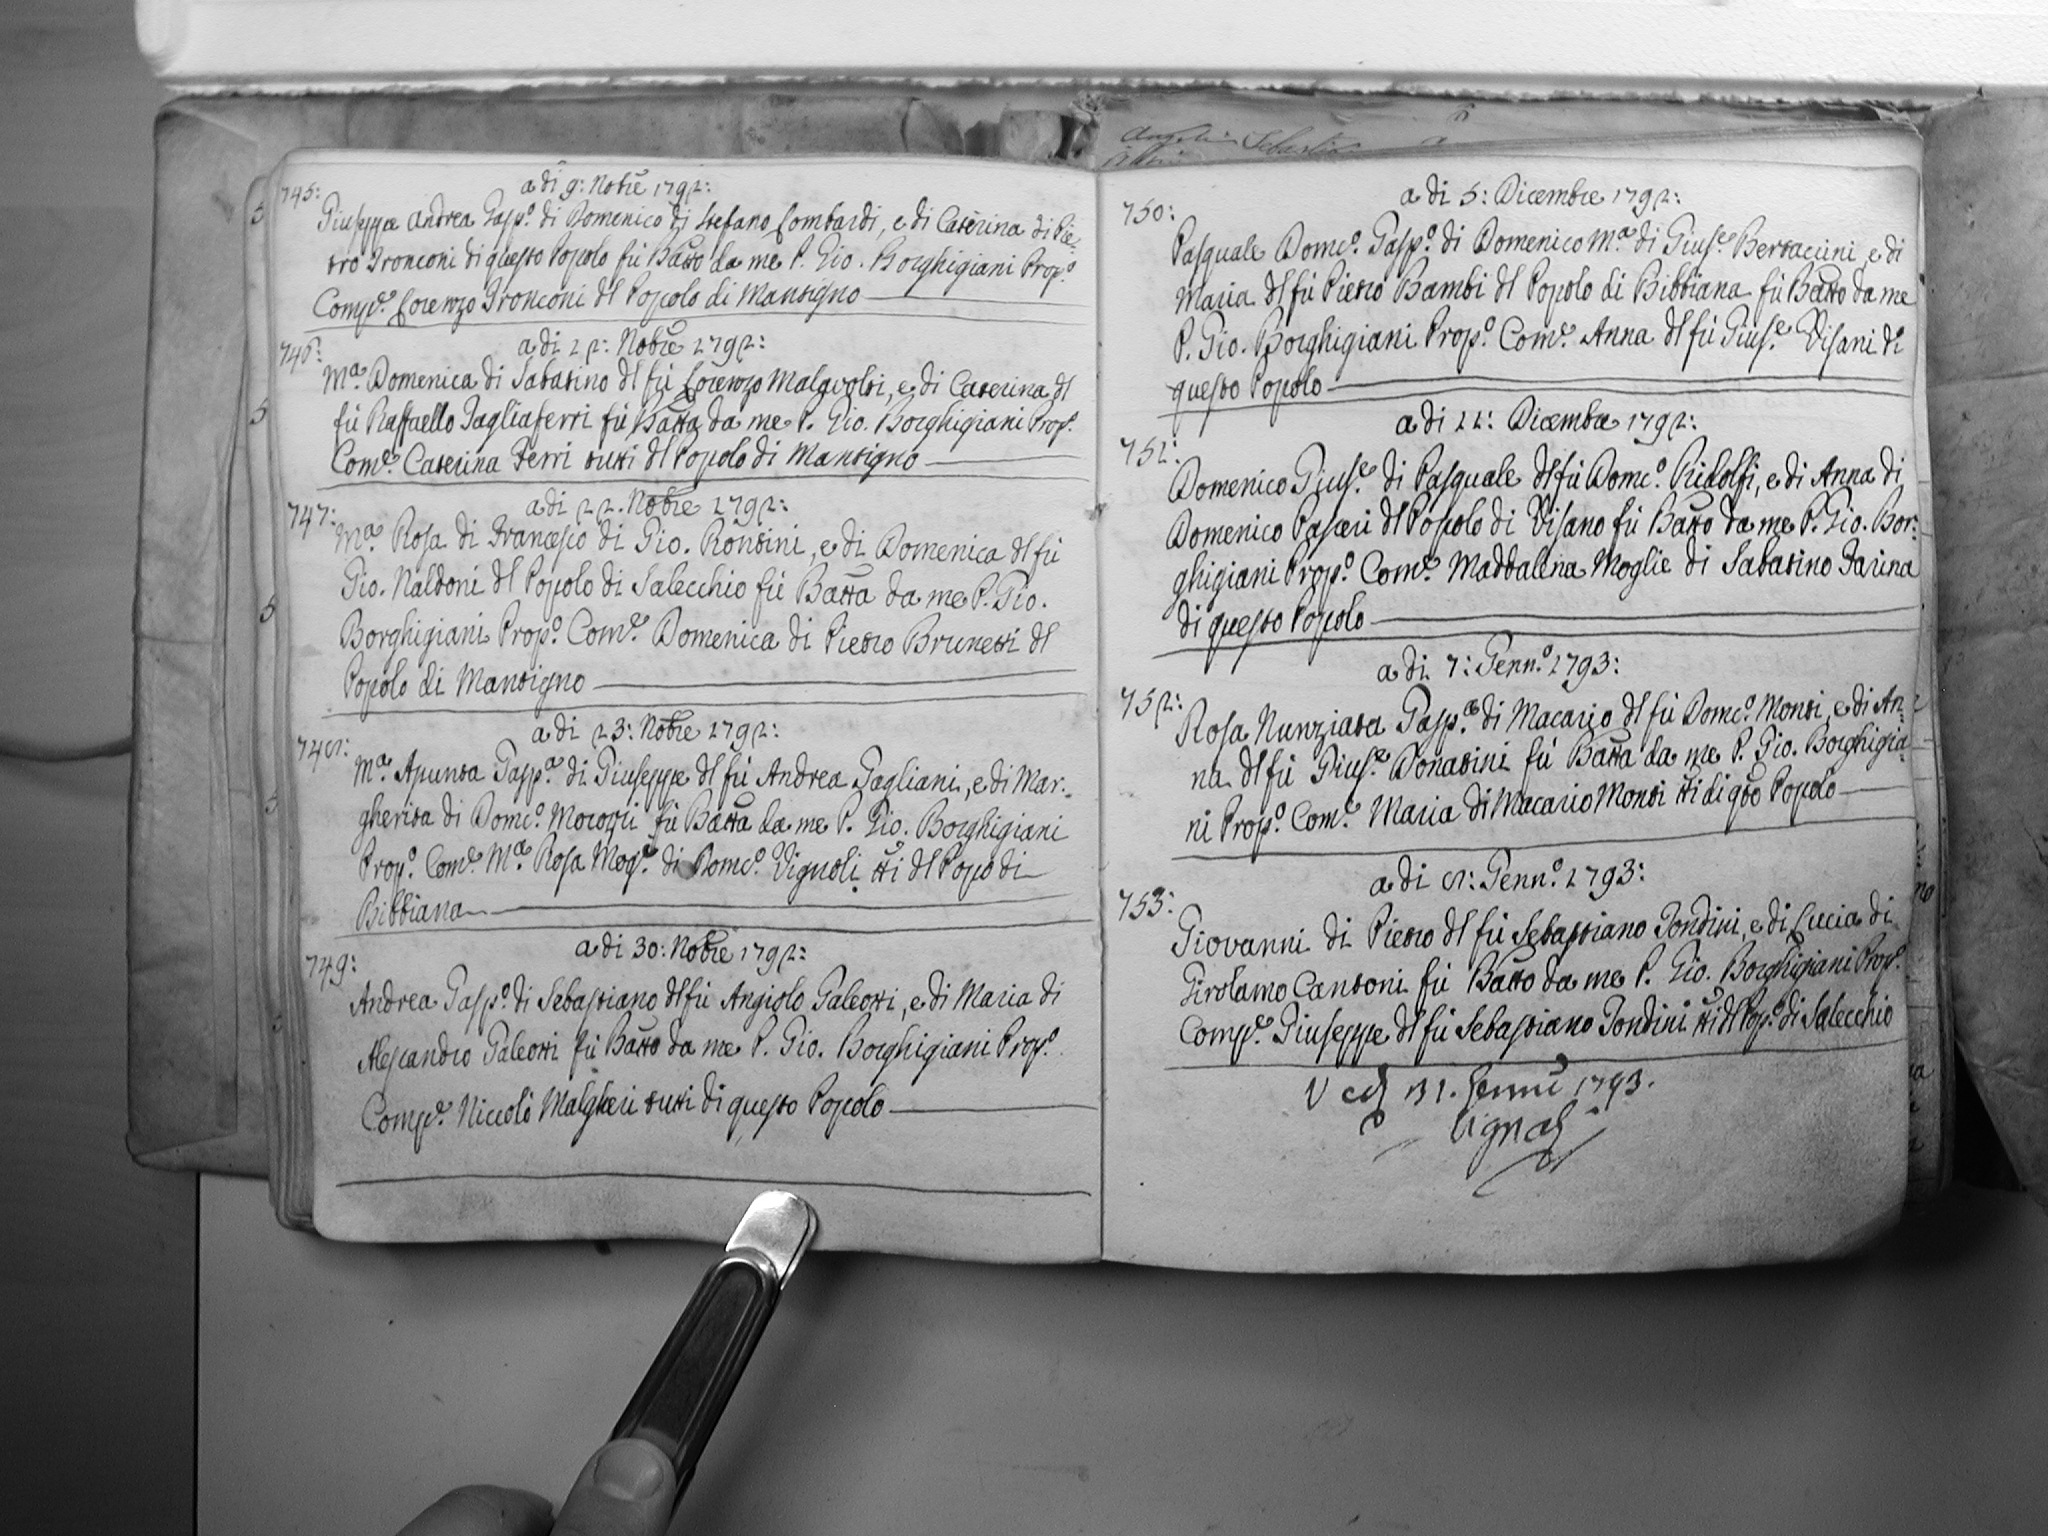 a di 9: Nobre 1792:
745:
Giuseppe Andrea Gasp.o di Domenico di Stefano Lombardi, e di Caterina di Pie-
tro Tronconi di questo Popolo fù Batto da me P. Gio. Borghigiani Prop.o
Comp.e Lorenzo Tronconi dl Popolo di Mantigno
a di 12: Nobre 1792:
746:
M.a Domenica di Sabatino dl fù Lorenzo Malavolti, e di Caterina dl
fù Raffaello Tagliaferri fù Batta da me P. Gio. Borghigiani Prop.
Com.e Caterina Ferri tutti dl Popolo di Mantigno
a di 22. Nobre 1792:
747:
M.a Rosa di Francesco di Gio. Rontini, e di Domenica dl fù
Gio. Naldoni dl Popolo di Salecchio fù Batta da me P. Gio.
Borghigiani Prop.o Com.e Domenica di Pietro Brunetti dl
Popolo di Mantigno
a di 23: Nobre 1792:
748:
M.a Apunta Gasp.a di Giuseppe dl fù Andrea Gagliani, e di Mar-
gherita di Domc.o fù Batta da me P. Gio. Borghigiani
Prop.o Com.e M.a Rosa Mog.e di Domc.o Vignoli tti dl Popo di
Bibbiana
a di 30: Nobre 1792:
749:
Andrea Gasp.o di Sebastiano dl fù Angiolo Galeotti, e di Maria di
Alesandro Galeotti fù Batto da me P. Gio. Borghigiani Prop.o
Comp.e Niccolò Malgheri tutti di questo Popolo
Sebastia
a di 5: Dicembre 1792:
750:
Pasquale Domc.o Gasp.o di Domenico M.a di Gius.e Bertaccini, e di
Maria dl fù Pietro Bambi dl Popolo di Bibbiana fù Batto da me
P. Gio. Borghigiani Prop.o Com.e Anna dl fù Gius.e Visani di
questo Popolo
a di 11: Dicembre 1792:
751:
Domenico Gius.e di Pasquale dl fù Domc.o Ridolfi, e di Anna di
Domenico Paseri dl Popolo di Visano fù Batto da me P. Gio. Bor:
ghigiani Prop.o Com.e Maddalena Moglie di Sabatino Farina
di questo Popolo
a di 7: Genn.o 1793:
752:
Rosa Nunziata Gasp.a di Macario dl fù Domc.o Monti, e di An-
na dl fù Gius.e Donatini fù Batta da me P. Gio. Borghigia-
ni Prop.o Com.e Maria di Macario Monti tti di qto Popolo
a di 8: Genn.o 1793:
753:
Giovanni di Pietro dl fù Sebastiano Tondini, e di Lucia di
Girolamo Cantoni fù Batto da me P. Gio. Borghigiani Prop.
Comp.e Giuseppe dl fù Sebastiano Tondini tti dl Pop.o di Salecchio
1793.